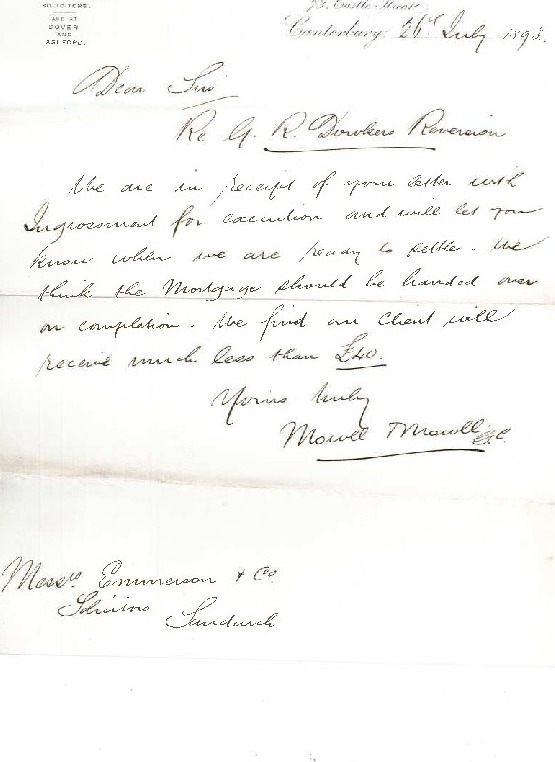 SOLICITORS.
AND AT
DOVER
AND
ASHFORD.
Castle Street
Canterbury, 26th July 189
Dear Sirs
Re G. R. Dowkers Reversion
We are in receipt of your letter with
Ingrossment for execution and will let you
know when we are ready to settle. We
think the Mortgage should be handed over
on completion. We find our client will
receive much less than £40.
Yours truly
Mowll & Mowll
Messrs Emmerson & Co
Solicitors
Sandwich